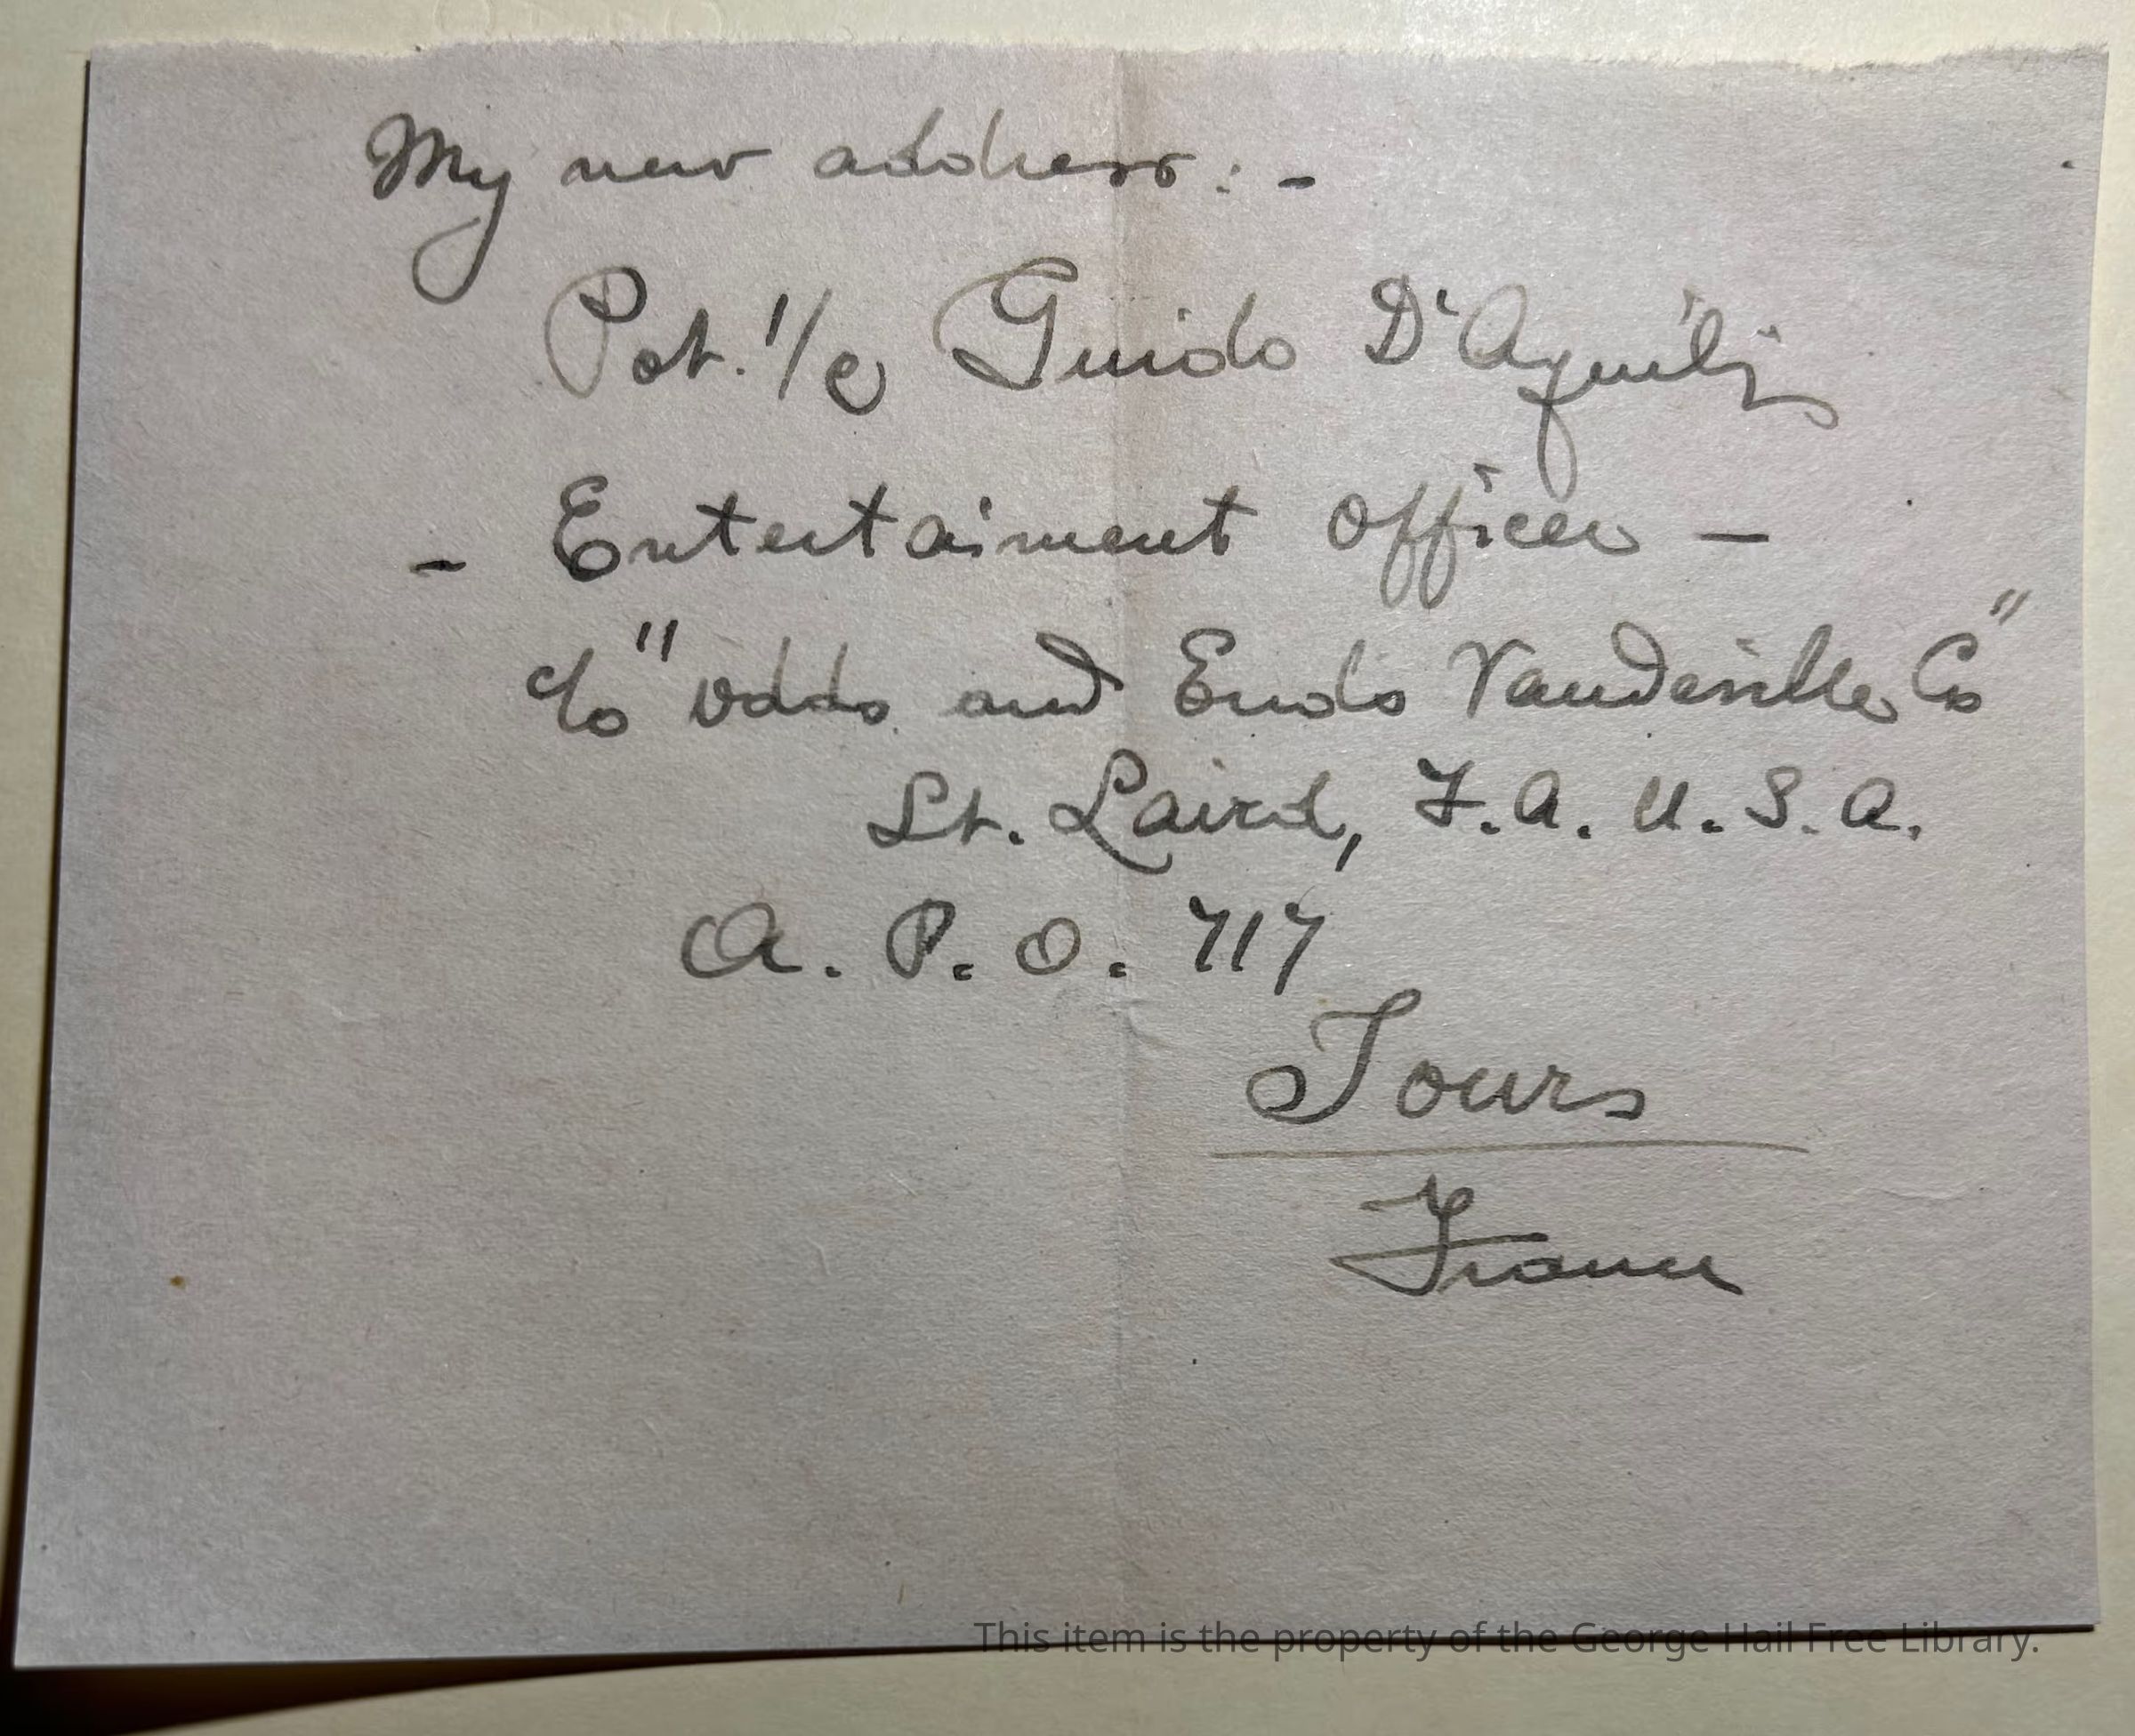 My new address:-
Pvt. 1/c Guido D'Aquilj
- Entertaiment Officer -
c/o "Odds and Ends Vaudeville Co"
Lt. Laird, F.A. U.S.A.
A. P. O. 717
Tours
France
This item is the property of the George Hail Free Library.